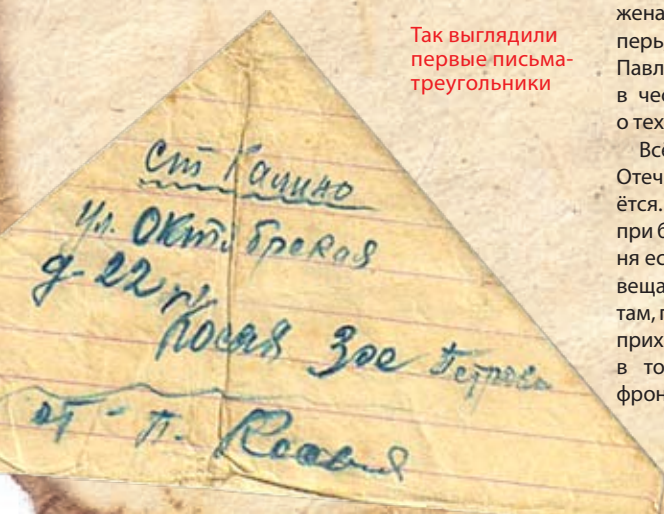 Так выглядили
первые письма-
треугольники
ст Калино
Ул. Октябрская
д-22
Косая Зое
от П.
жена
перв
Павл
в чес
о тех
Всё
Отеч
ётся.
при б
ня ес
веща
там, г
прих
в то
фрон